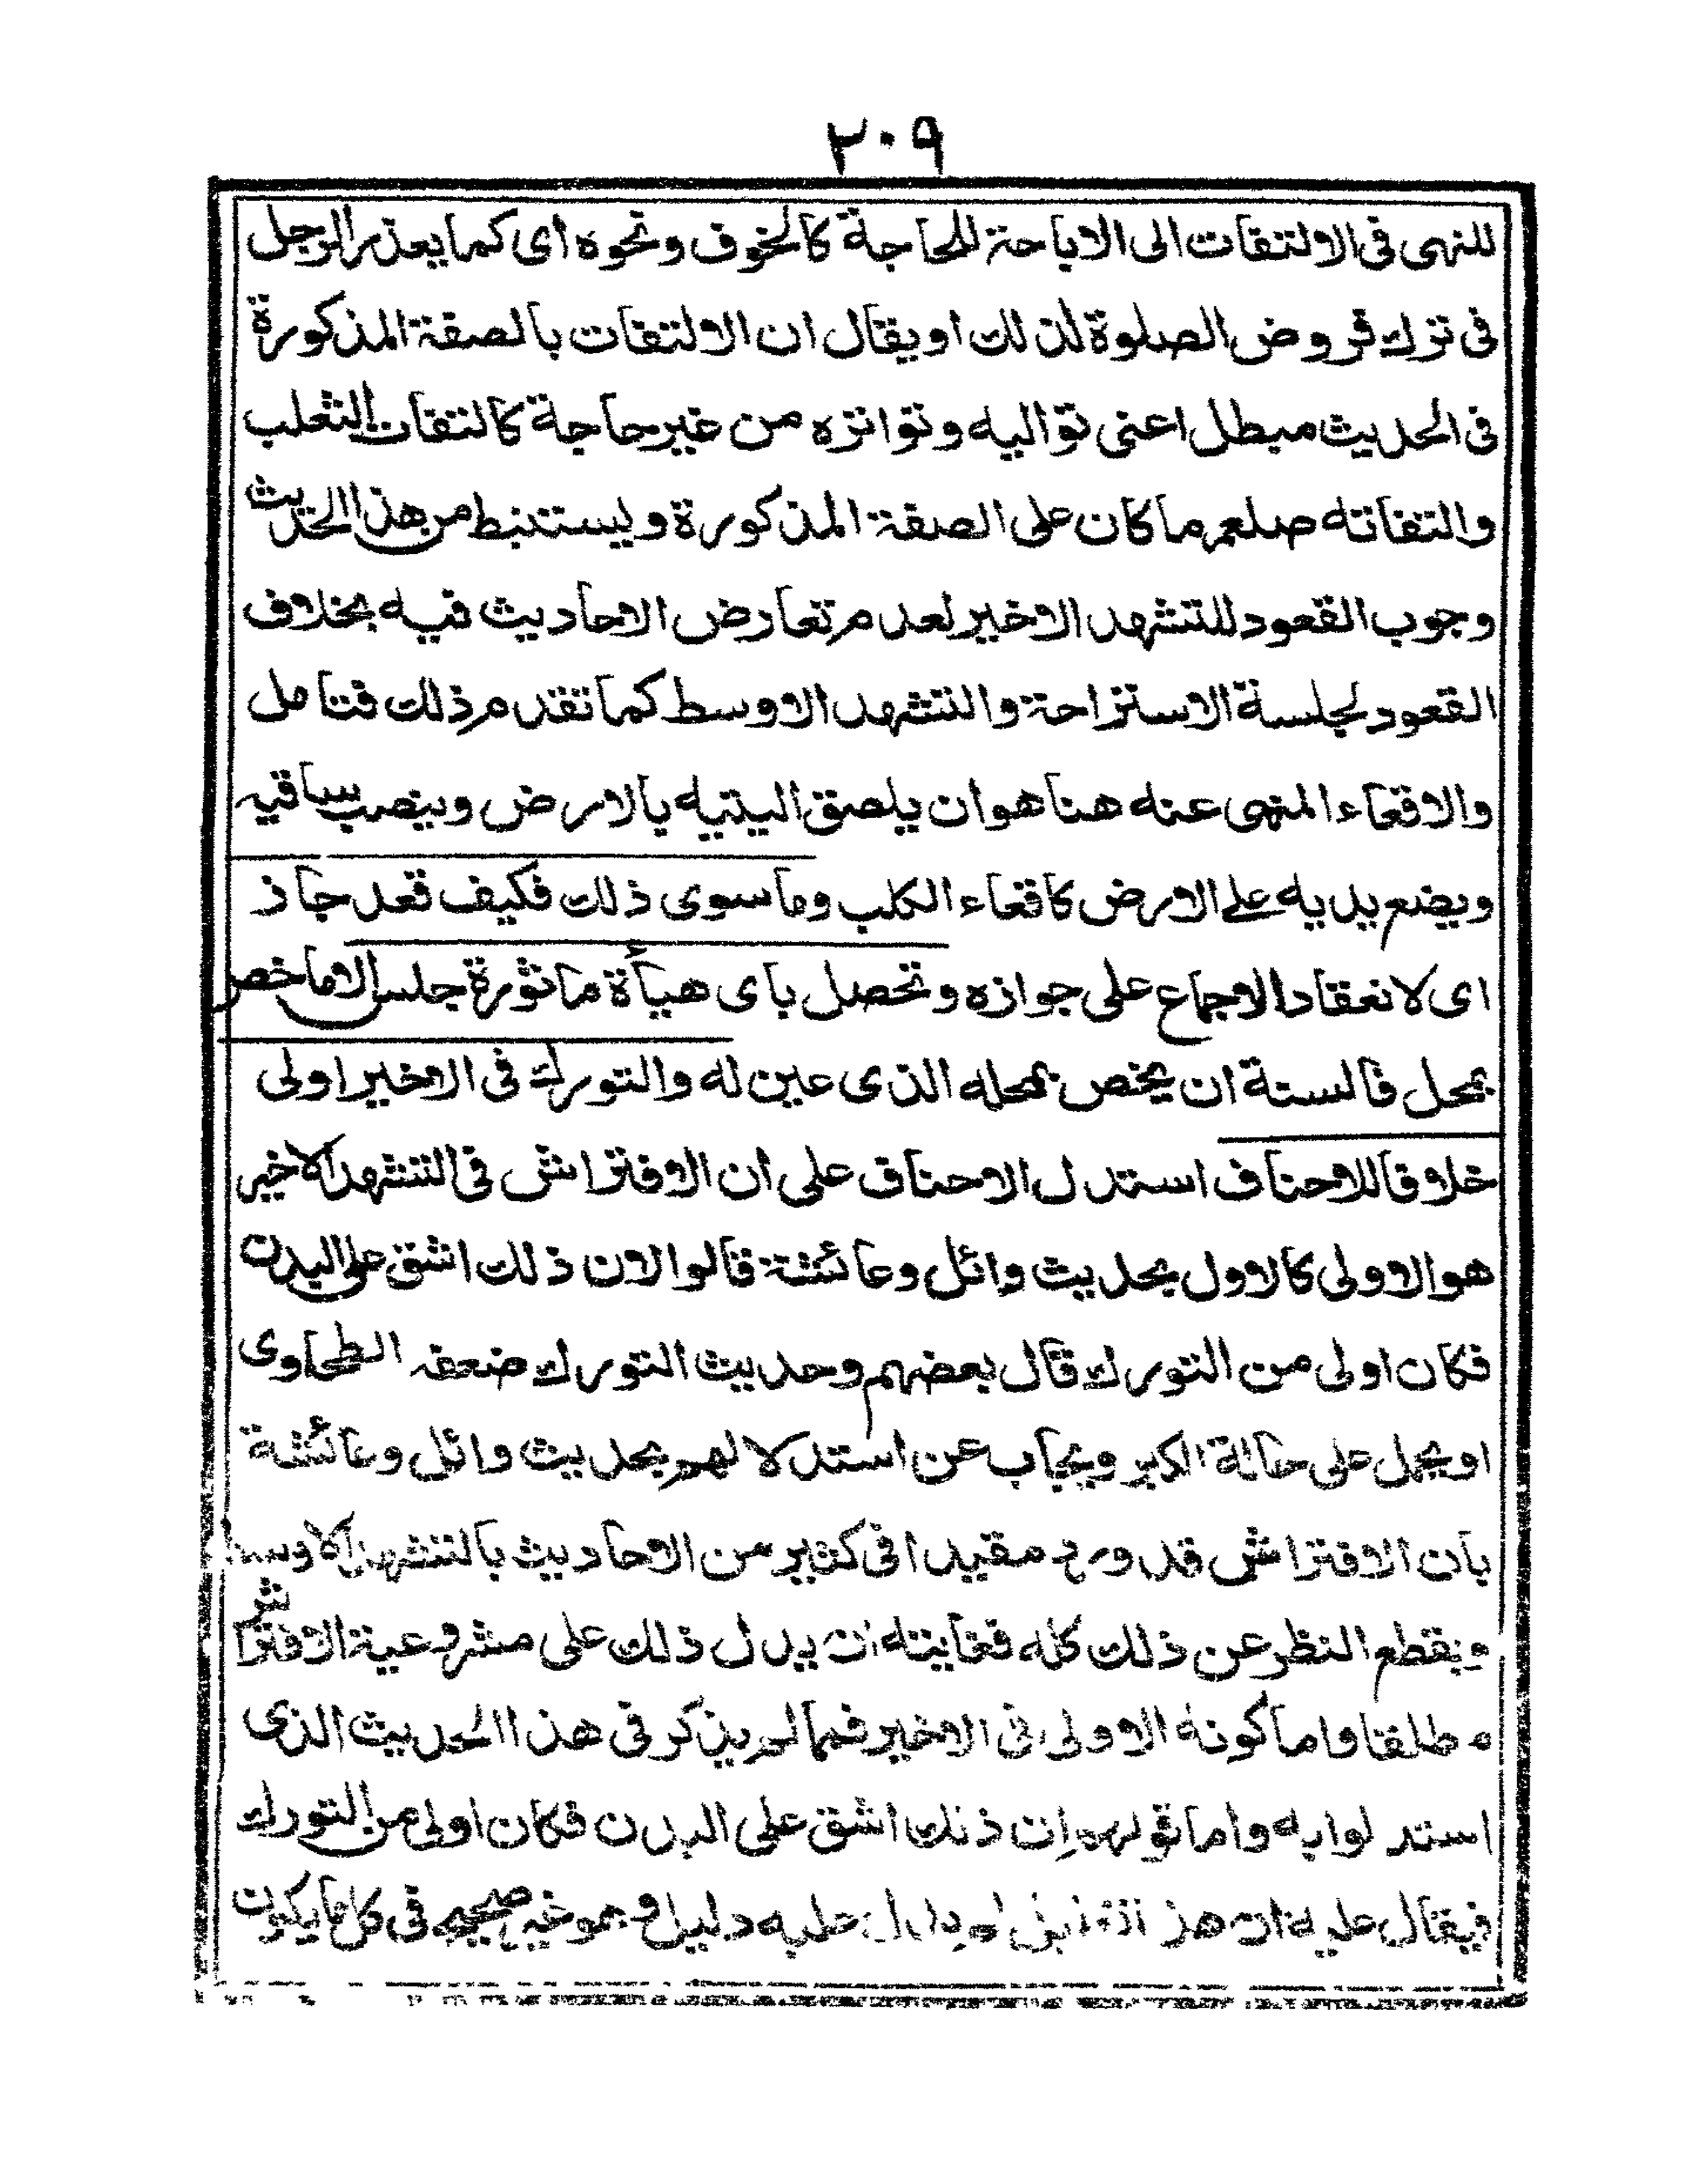 ٢٠٩
للنهى فى الالتفات الى الاباحة للحاجة كالخوف ونحوه اى كما يعذر الرجل
فى ترك فروض الصلوة لذلك او يقال ان الالتفات بالصفة المذكورة
فى الحديث مبطل اعنى تواليه وتواتره من غير حاجة كالتفات الثعلب
والتفاته صلعم ما كان على الصفة المذكورة ويستنبط من هذا الحديث
وجوب القعود للتشهد الاخير لعدم تعارض الاحاديث فيه بخلاف
القعود لجلسة الاستراحة والتشهد الاوسط كما تقدم ذلك فتامل
والاقعاء المنهى عنه هنا هو ان يلصق اليتيه بالارض وينصب ساقيه
ويضع يديه على الارض كاقعاء الكلب وما سوى ذلك فكيف قعد جاز
اى لانعقاد الاجماع على جوازه وتحصل باى هيأة ماثورة جلس الا ما خص
بمحل فالسنة ان يختص بمحله الذى عين له والتورك فى الاخير اولى
خلافا للاحناف استدل الاحناف على ان الافتراش فى التشهد الاخير
هو الاولى كالاول بحديث وائل وعائشة قالوا لان ذلك اشق على البدن
فكان اولى من التورك قال بعضهم وحديث التورك ضعفه الطحاوى
او يحمل على حالة الكبر ويجاب عن استدلالهم بحديث وائل وعائشة
بان الافتراش قد ورد مقيدا فى كثير من الاحاديث بالتشهد الاوسط
وبقطع النظر عن ذلك كله فغايته ان يدل ذلك على مشروعية الافتراش
مطلقا واما كونه الاولى فى الاخير فمما لم يذكر فى هذا الحديث الذى
استدلوا به واما قولهم ان ذلك اشق على البدن فكان اولى من التورك
فيقال عليه ان هذا لم يدل عليه دليل وهو غير صحيح فى كل ما يكون